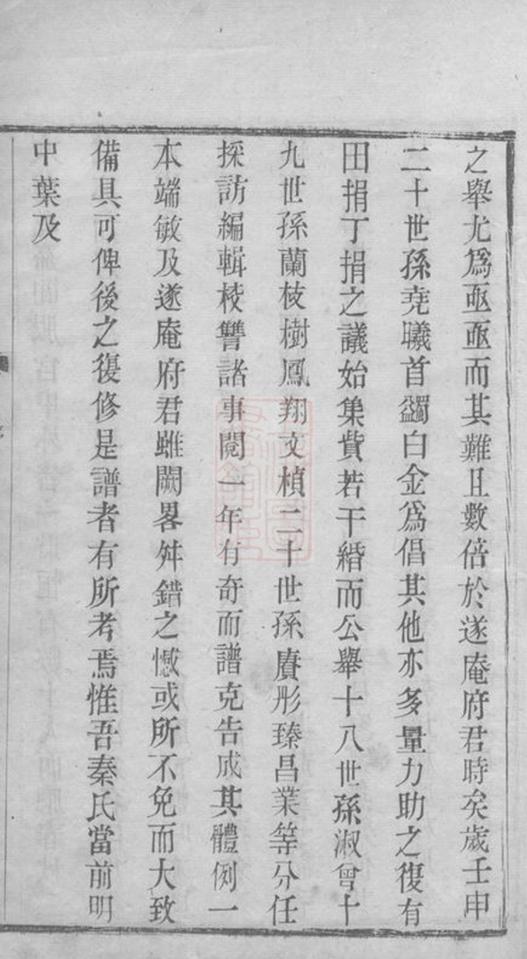 之舉尤爲亟亟而其難且數倍於遂庵府君時矣歲壬申
二十世孫堯曦首蠲白金爲倡其他亦多量力助之復有
田捐丁捐之議始集貲若干緡而公舉十八世孫淑曾十
九世孫蘭枝樹鳳翔文楨二十世孫賡彤臻昌業等分任
採訪編輯校讐諸事閱一年有奇而譜克告成其體例一
本端敏及遂庵府君雖闕畧舛錯之憾或所不免而大致
備具可俾後之復修是譜者有所考焉惟吾秦氏當前明
中葉及